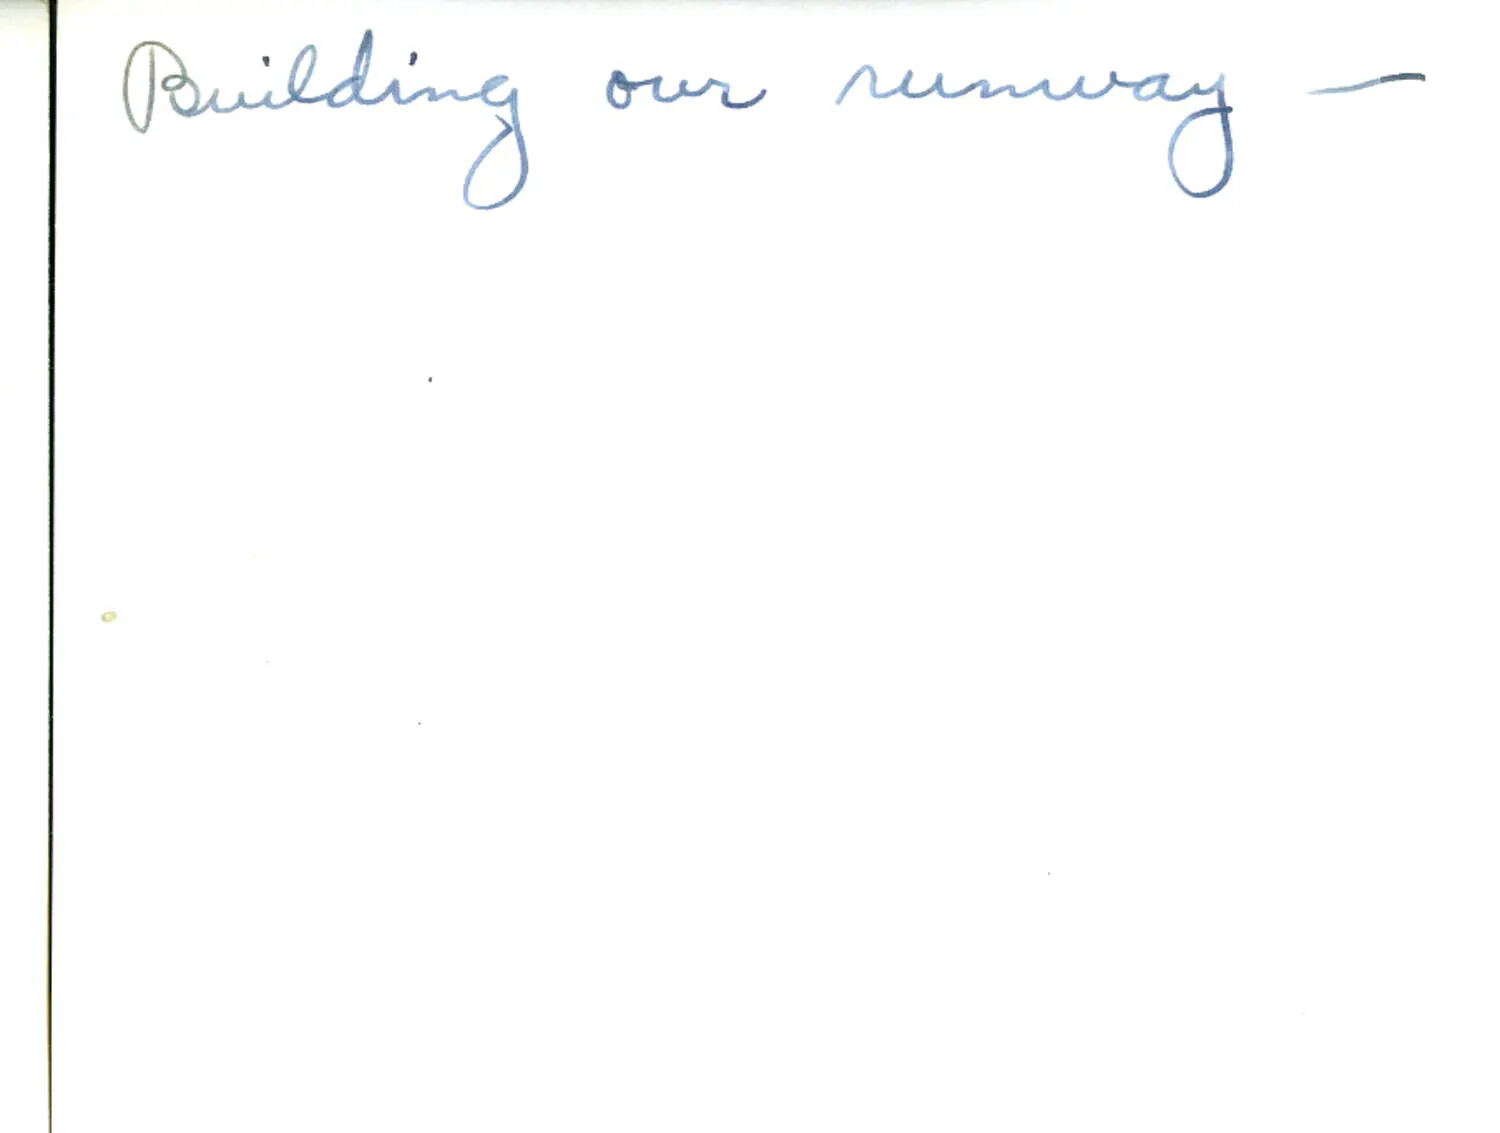 Building our runway —